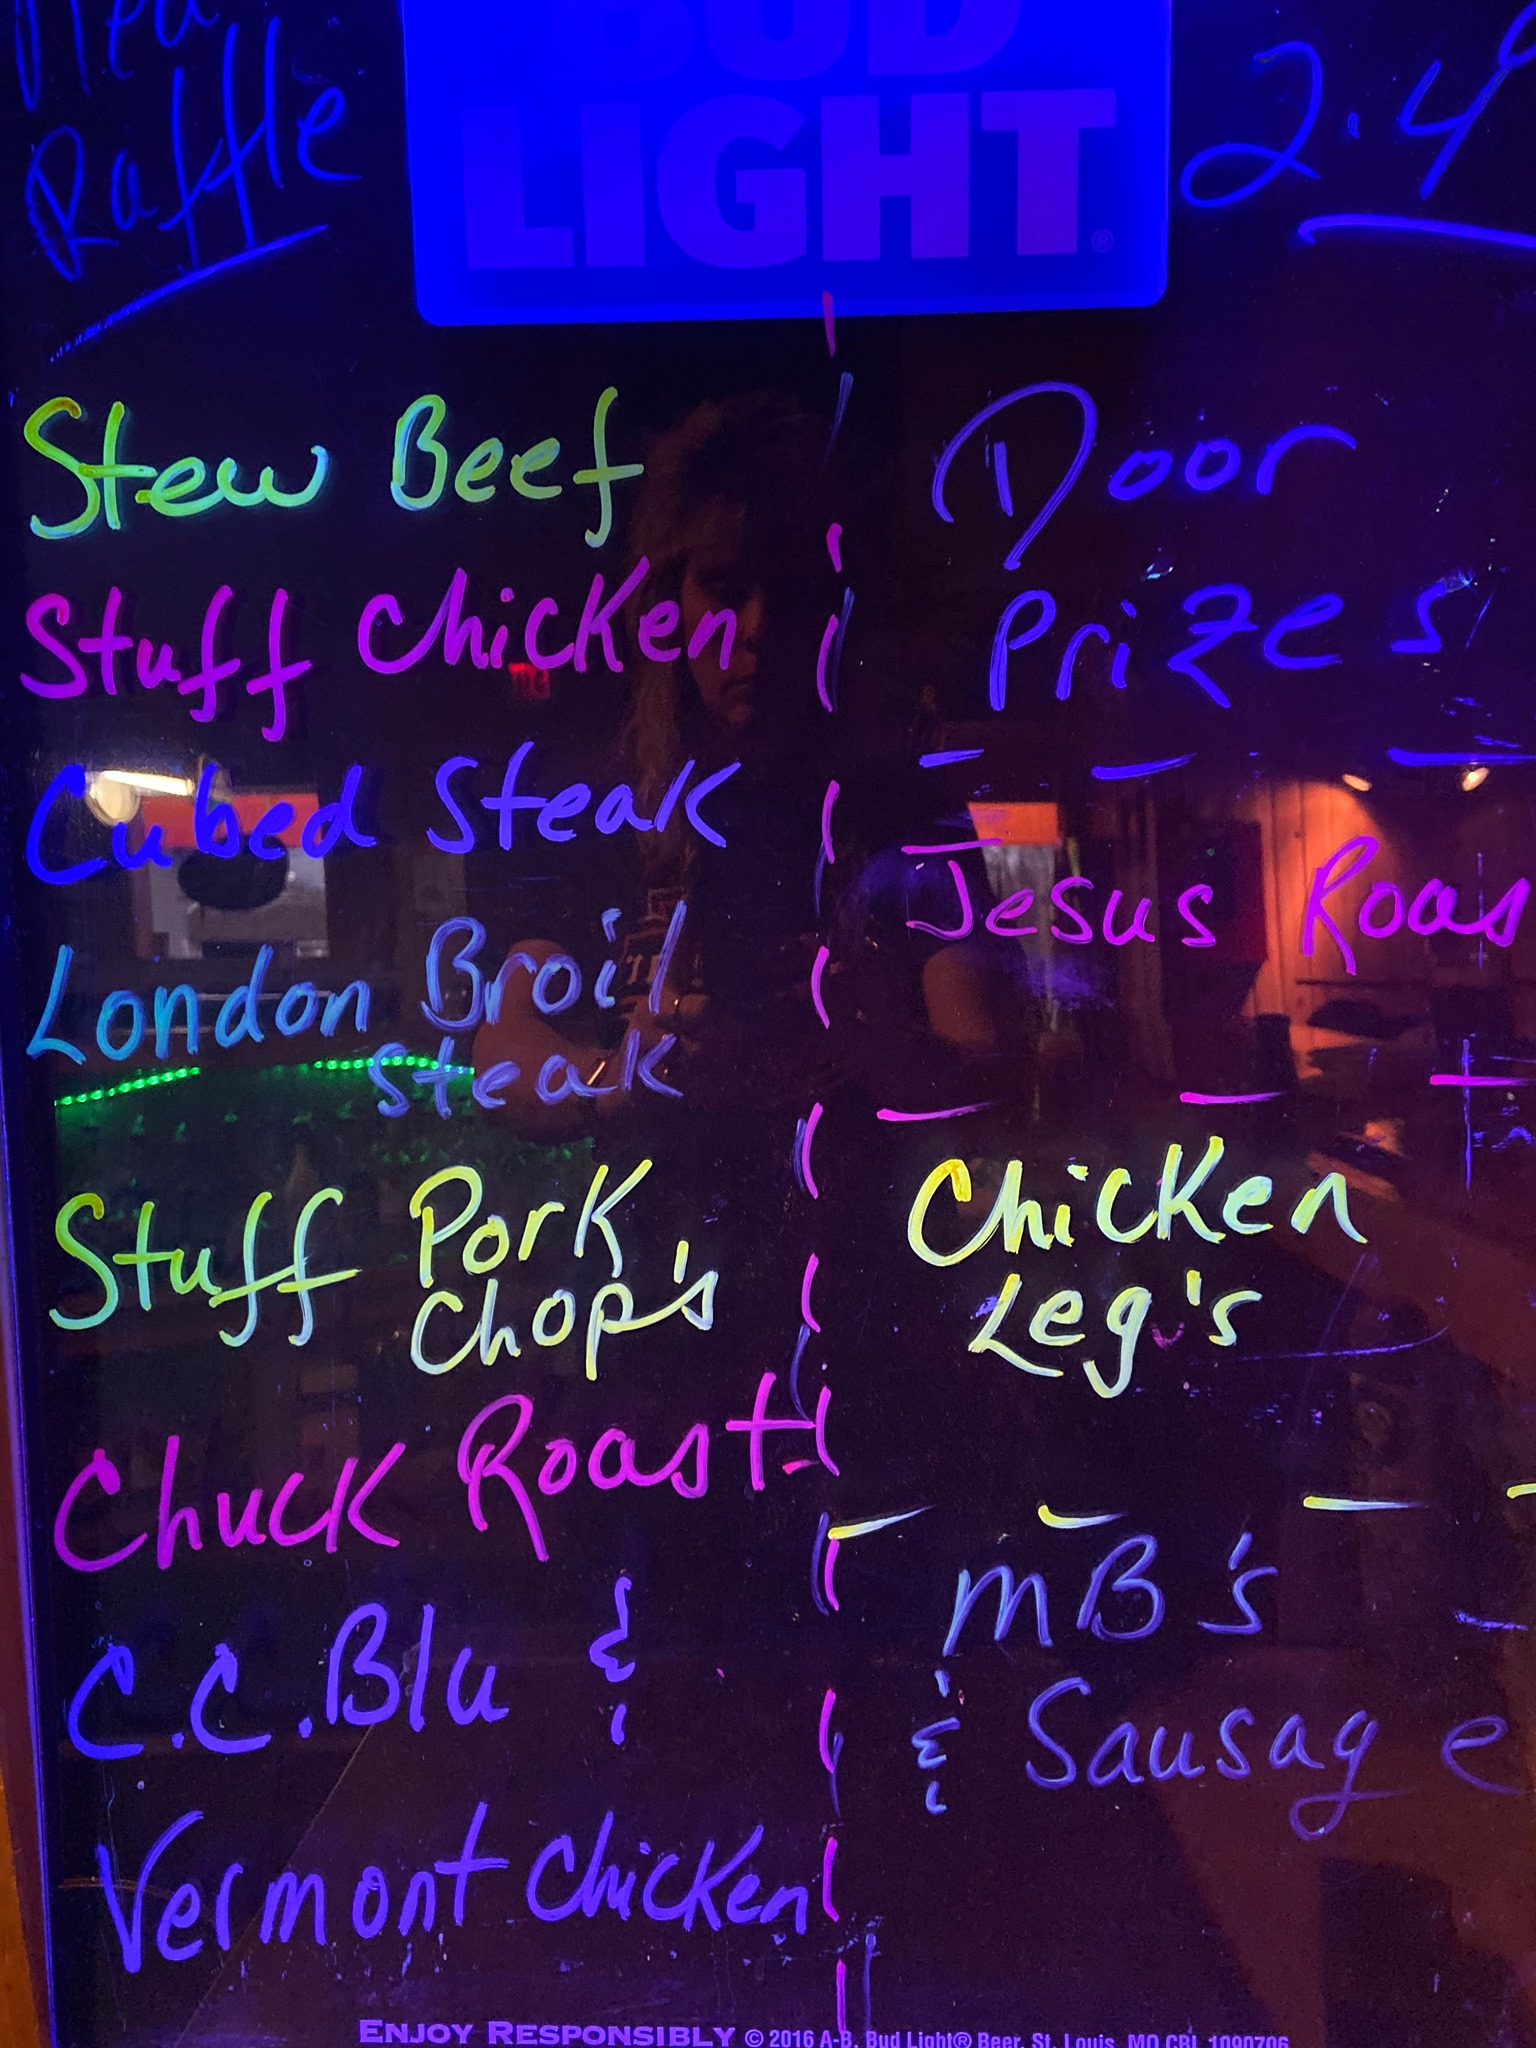 Raffle
BUD
LIGHT®
2-4
Stew Beef
Stuff Chicken
Cubed Steak
London Broil
Steak
Stuff Pork
Chop's
Chuck Roast
C.C.Blu &
Vermont Chicken
Door
Prizes
Jesus Roast
Chicken
Leg's
MB's
& Sausage
ENJOY RESPONSIBLY © 2016 A-B, Bud Light® Beer, St. Louis, MO CBL 1090706